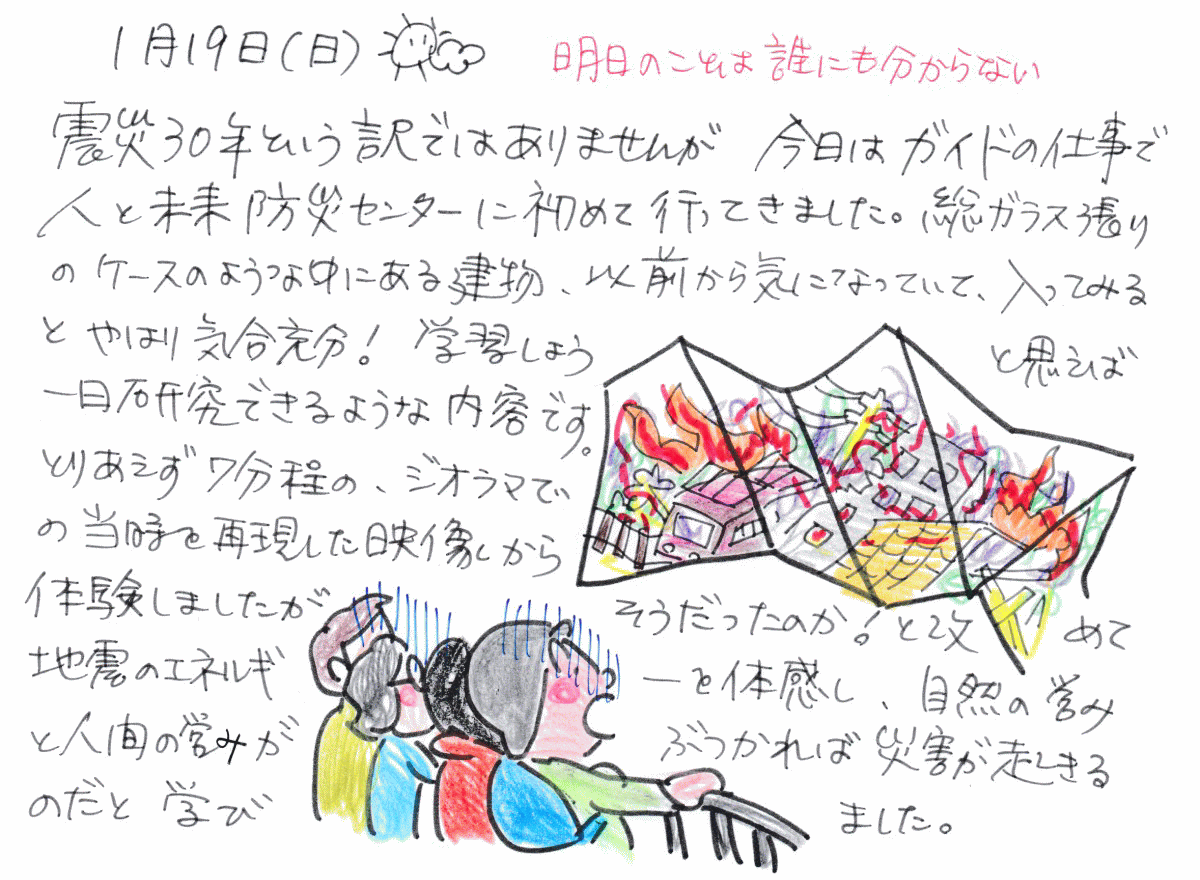 1月19日(日) 明日のことは誰にも分からない
震災30年という訳ではありませんが 今日はガイドの仕事で
人と未来防災センターに初めて行ってきました。総ガラス張り
のケースのような中にある建物、以前から気になっていて、入ってみる
とやはり気合充分! 学習しよう と思えば
一日研究できるような内容です。
とりあえず7分程の、ジオラマで
の当時を再現した映像から
体験しましたが そうだったのか!と改 めて
地震のエネルギ ーを体感し、自然の営み
と人間の営みが ぶつかれば災害が起きる
のだと 学び ました。